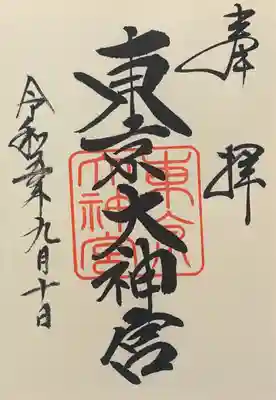 奉拝
東京大神宮
東京大神宮
令和五年九月十日